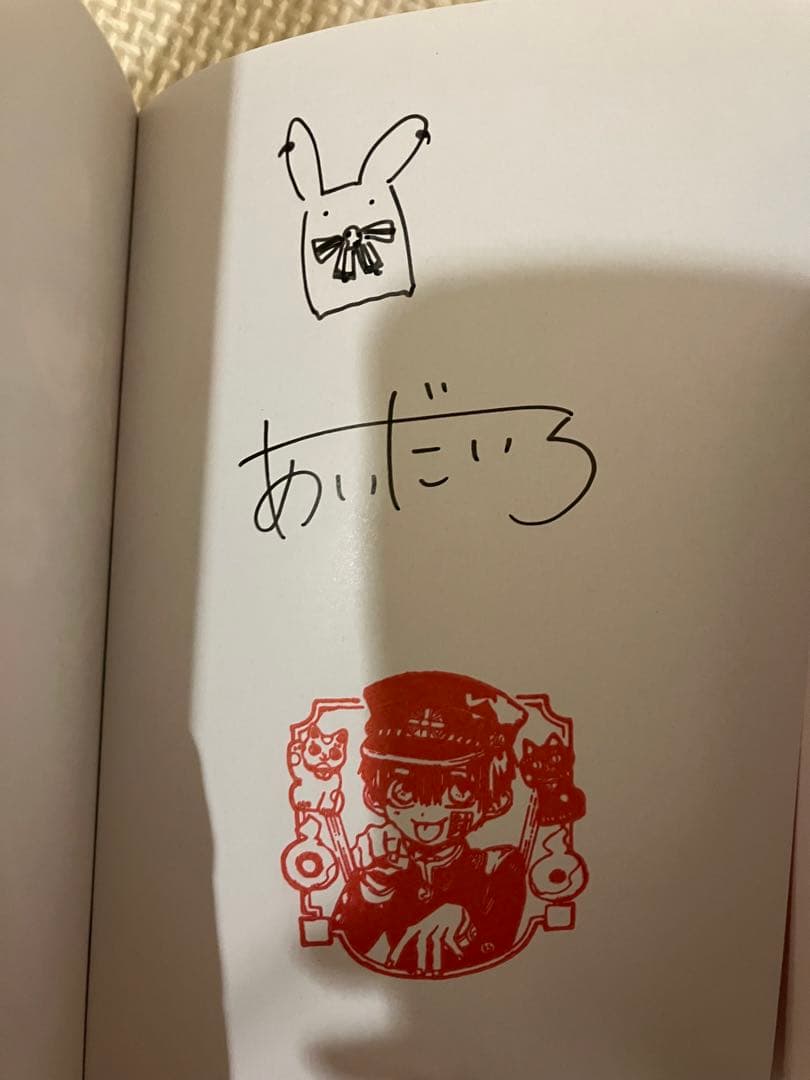 あいだいろ